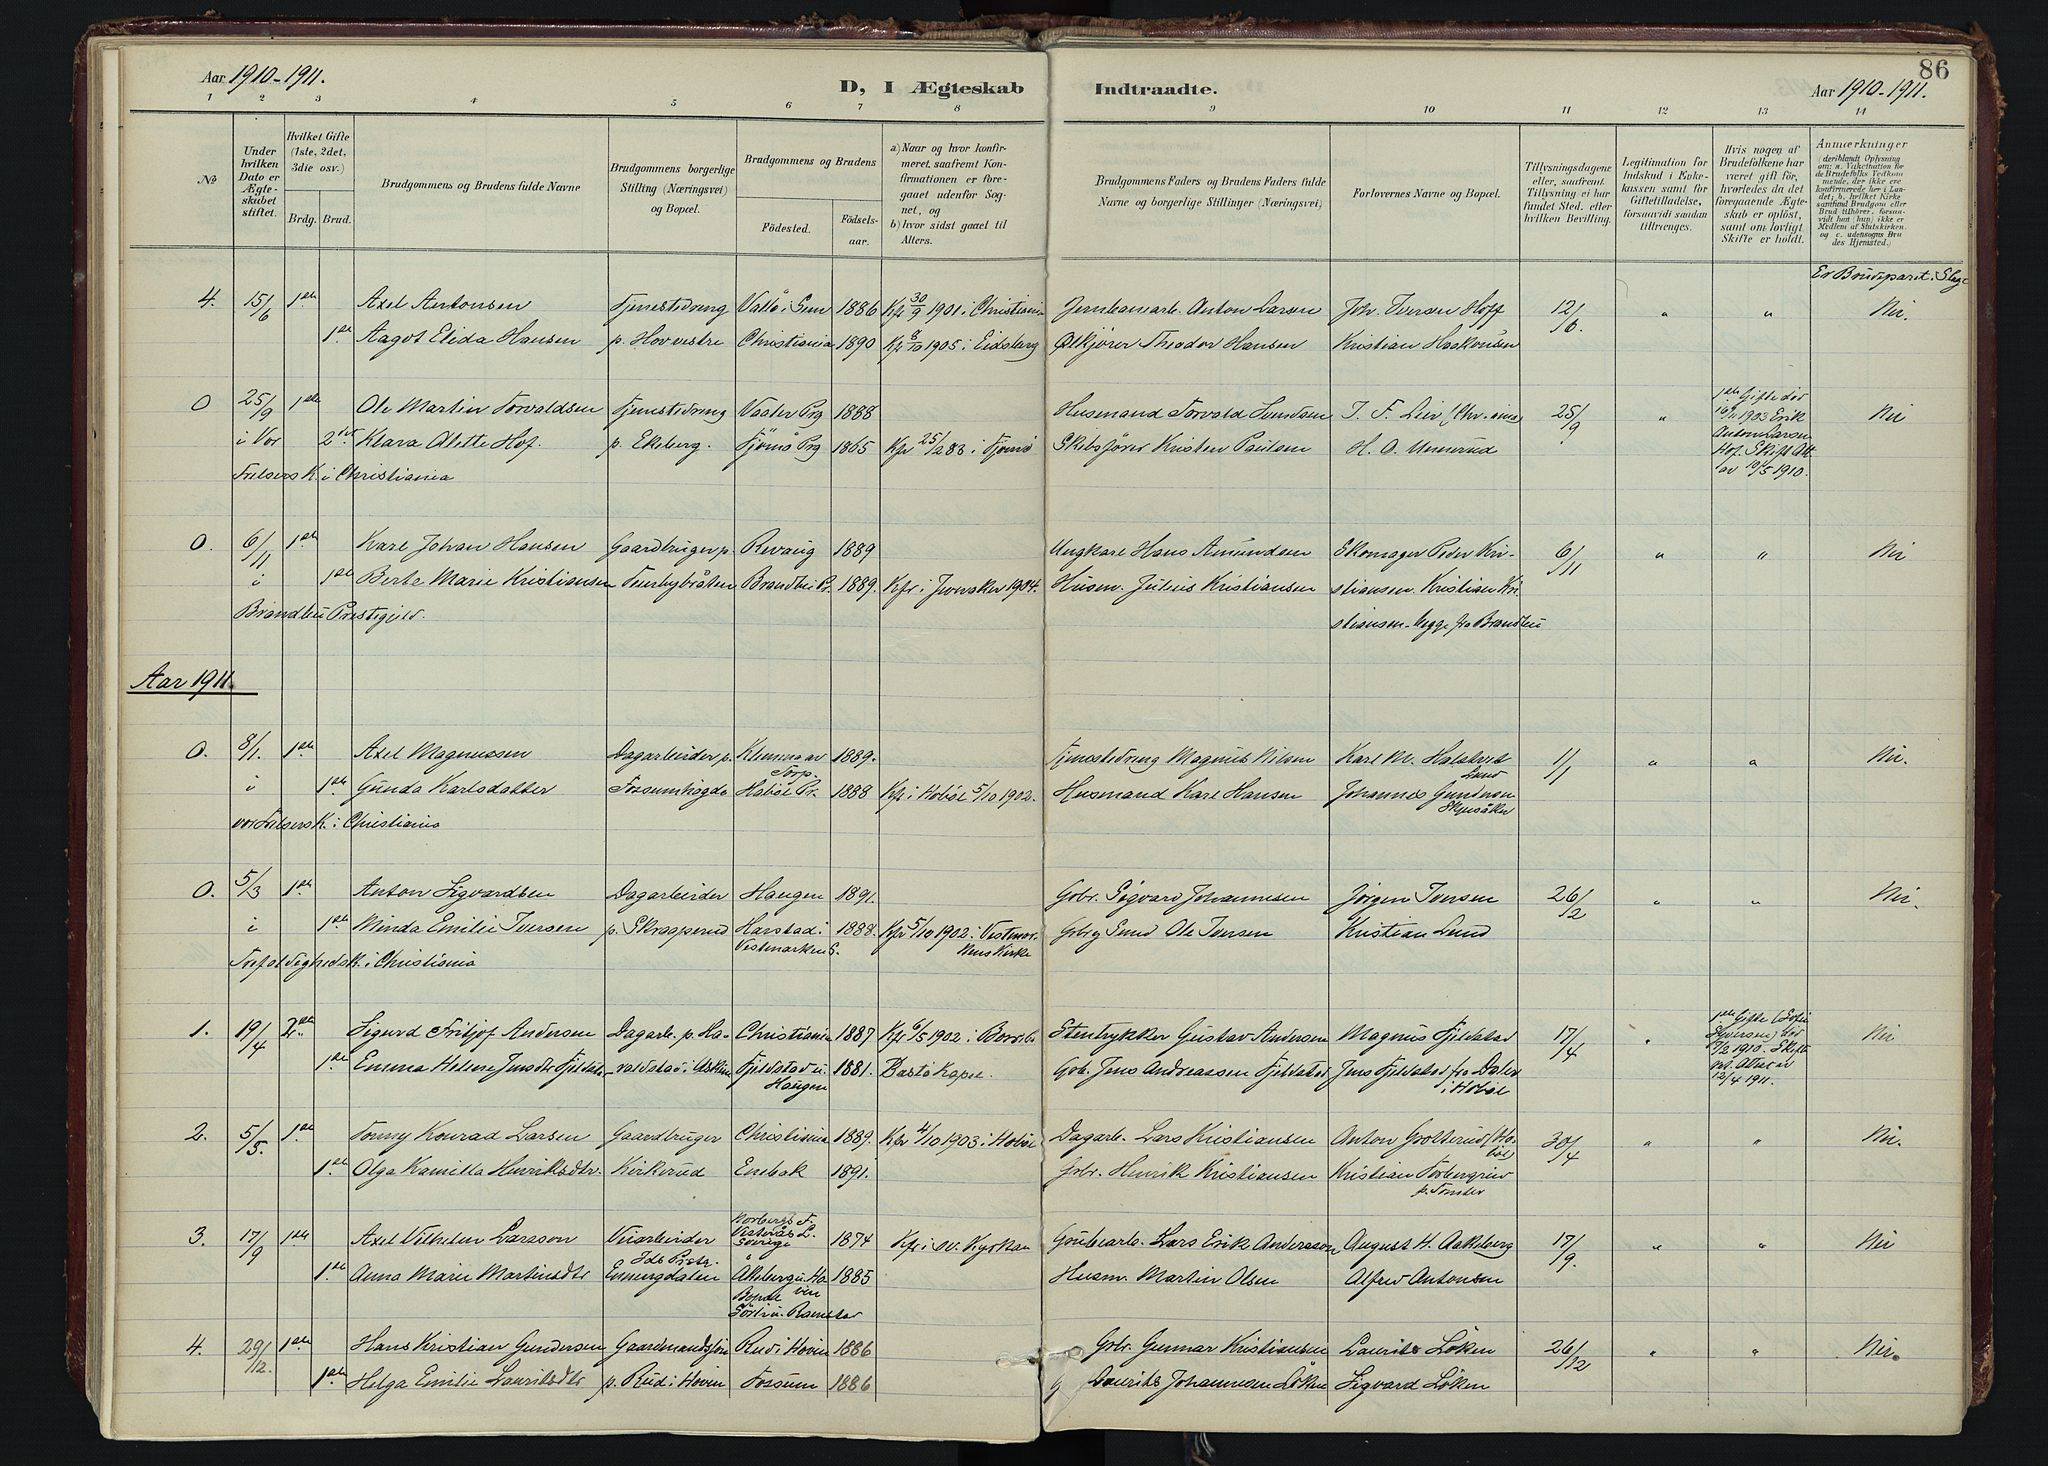 Aar 1910-1911.
D, I Ægteskab
Indtraadte.
Aar 1910-1911.
86
1 2 3 4 5 6 7 8 9 10 11 12 13 14
No
Under hvilken Dato er Ægteskabet stiftet.
Hvilket Gifte (1ste, 2det, 3die osv.)
Brdg. Brud.
Brudgommens og Brudens fulde Navne
Brudgommens borgerlige Stilling (Næringsvei) og Bopæl.
Brudgommens og Brudens
Fødested.
Fødsels-aar.
a) Naar og hvor konfirmeret, saafremt Konfirmationen er foregaaet udenfor Sognet, og
b) hvor sidst gaaet til Alters.
Brudgommens Faders og Brudens Faders fulde Navne og borgerlige Stillinger (Næringsvei)
Forlovernes Navne og Bopæl.
Tillysningsdagene eller, saafremt Tillysning ei har fundet Sted, efter hvilken Bevilling.
Legitimation for Indskud i Enkekassen samt for Giftetilladelse, forsaavidt saadan tiltrænges.
Hvis nogen af Brudefolkene har været gift før, hvorledes da det foregaaende Ægteskab er opløst, samt om lovligt Skifte er holdt.
Anmærkninger
(deriblandt Oplysning om: a. Vakcination for de Brudefolks Vedkommende, der ikke ere konfirmerede her i Landet; b. hvilket Kirkesamfund Brudgom eller Brud tilhører, forsaavidt han (hun) ikke er Medlem af Statskirken, og c. udensogns Brudes Hjemsted.)
Er Brudeparet i Slægt
4. 15/6 1ste Axel Antonsen Tjenestedreng Vallø i Sem 1886 Kfr 30/9 1901 i Christiania Jernbanearb. Anton Larsen Joh. Iversen Hoff 12/6 " " Nei.
1ste Aagot Elida Hansen p. Hov vestre Christiania 1890 Kfr 8/10 1905 i Eidsberg Ølkjører Theodor Hansen Kristian Haakonsen
0 25/9 1ste Ole Martin Torvaldsen Tjenestedreng Vaaler Prg 1888 Husmand Torvald Svendsen I. F. Leiv (Chr-ania) 25/9 " 1ste Gifte død Nei
i Vor 2det Klara Alette Hof. p. Ekeberg. Tjømø Prg 1865 Kfr 25/2 83 i Tjømø Skibsfører Kristen Paulsen H. O. Unnerud 1903 Erik Anton Larsen Hof. Skift. Att. av 19/5 1910.
Frelsers K. i Christiania
0. 6/11 1ste Karl Johan Hansen Gaardbruger p. Revaug 1889 Ungkarl Hans Amundsen Skomager Peder Kri- 6/11 " " Nei
i 1ste Berte Marie Kristiansen Tenerbybråten Brandbu Pr. 1889. Kfr i Jevnaker 1904. Husm. Julius Kristiansen stiansen. Kristian Kri
Brandbu Prestegjeld. stiansen begge fra Brandbu
Aar 1911.
0. 8/1. 1ste Axel Magnussen Dagarbeider p. Klemma av Torp. 1889. Tjenestedreng Magnus Nilsen Karl M. Halstvet Lund 1/1 " " Nei.
i 1ste Gunda Karlsdatter Fossumhøgda Hobøl Pr. 1888 Kfr i Hobøl 5/10 1902. Husmand Karl Hansen Johannes Gundersen
vor Frelsers K. i Christiania
0. 5/3 1ste Anton Sigvardsen Dagarbeider Haugen 1891. Gbr. Sigvard Johannesen Jörgen Iversen 26/2 " " Nei.
i 1ste Minda Emilie Iversen p. Skrapperud Harstad i Vestmarken S. 1888. Kfr 5/10 1902 i Vestmarkens Kirke Ole Iversen Kristian Lund
Trefoldighedsk. i Christiania
1. 19/4 2det Sigurd Fritjof Andersen Dagarb. p. Ha- Christiania 1887 Kfr 6/5 1902 i Stentrykker Gustav Andersen Magnus Fjeldstad 17/4 " 1ste Gifte (Sofie Syversen) død 1910. Skifte 12/4 1911. Nei
1ste Emma Helene Jensdtr Fjeldstad valdstad i Askim Fjeldstad u. Haugen 1881. Bastø Kapel. Gbr. Jens Andreassen Fjeldstad Jens Fjeldstad fra Dalen i Hobøl
2. 5/5. 1ste Tonny Konrad Larsen Gaardbruger Christiania 1889. Kfr 4/10 1903 i Hobøl Dagarb. Lars Kristiansen Anton Grolterud (Hobøl) 30/4 " " Nei.
1ste Olga Kamilla Henriksdtr. Kirkerud Enebak 1891. Gbr. Henrik Kristiansen Kristian Torbergrud p. Tomter
3. 17/9 1ste Axel Vilhelm Larsson Veiarbeider Norbergs F. Vesterås L. Sverige 1874 Kfr i sv. Kyrkan Grubearb. Lars Erik Andersson August H. Aakeberg 17/9. " " Nei
1ste Anna Marie Martinsdtr Ids Prstr. Enningdalen Åkeberg u. Ho 1885 Husm. Martin Olsen Alfred Antonsen
4. 29/12. 1ste Hans Kristian Gundersen Gaardmandssøn Rud i Hovin 1886 Gbr. Gunnar Kristiansen Laurits Löken 26/12 " " Nei.
1ste Helga Emilie Lauritsdtr p. Rud i Hovin Fossum 1886 Laurits Johannesen Löken Sigvard Löken